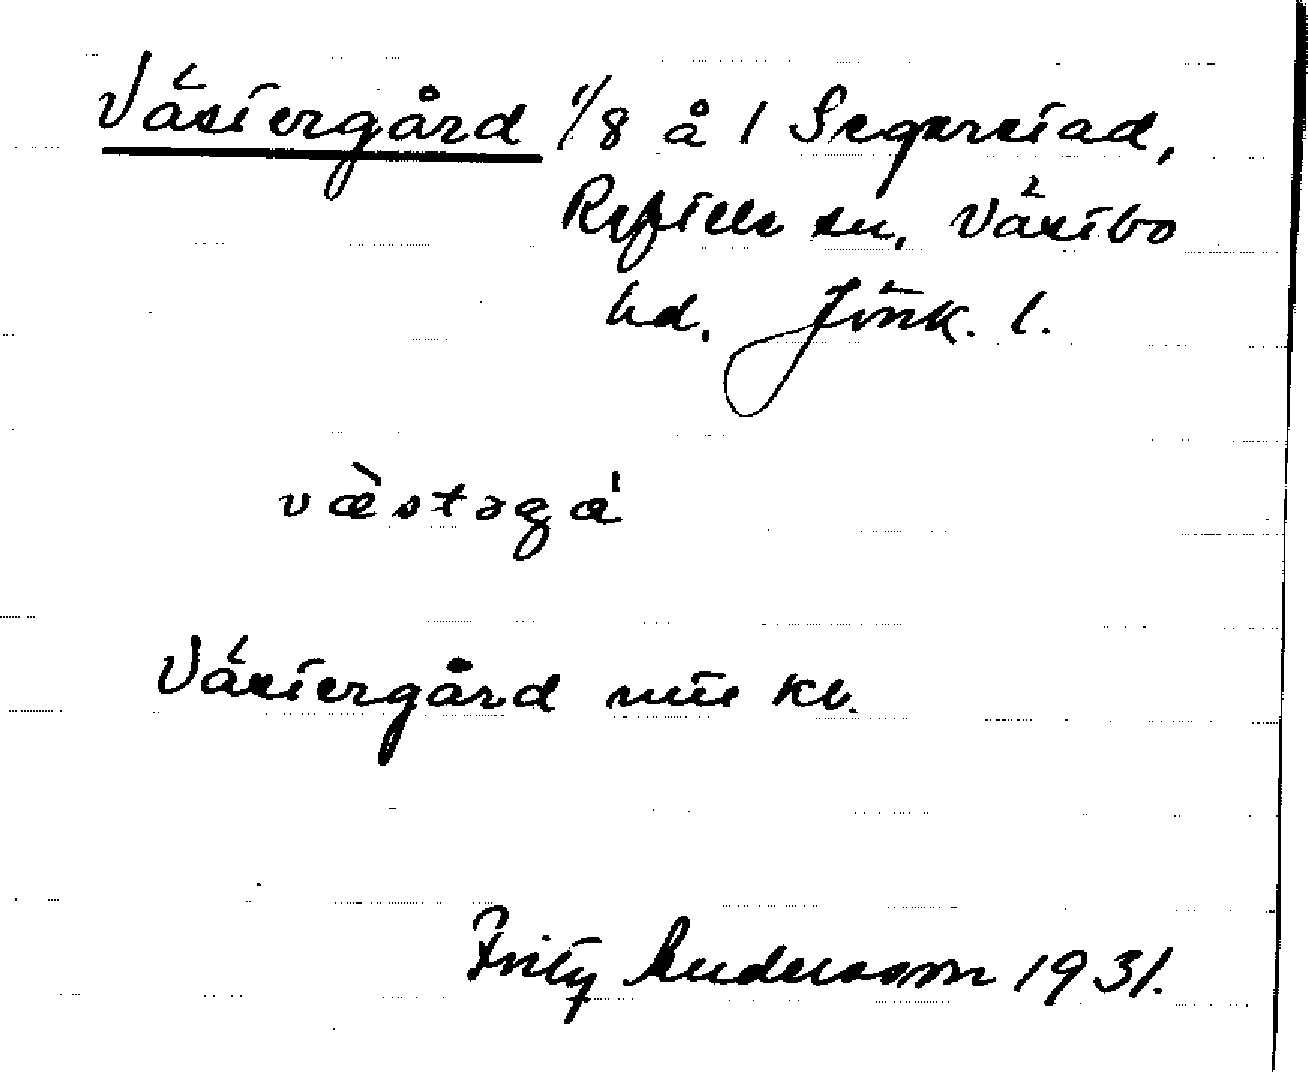 Västergård 1/8 å 1 Segerstad,
Reftele sn, Västbo
hd. Jönk. l.
væ̀stəgá
Västergård mtl kb.
Fritz Andersson 1931.